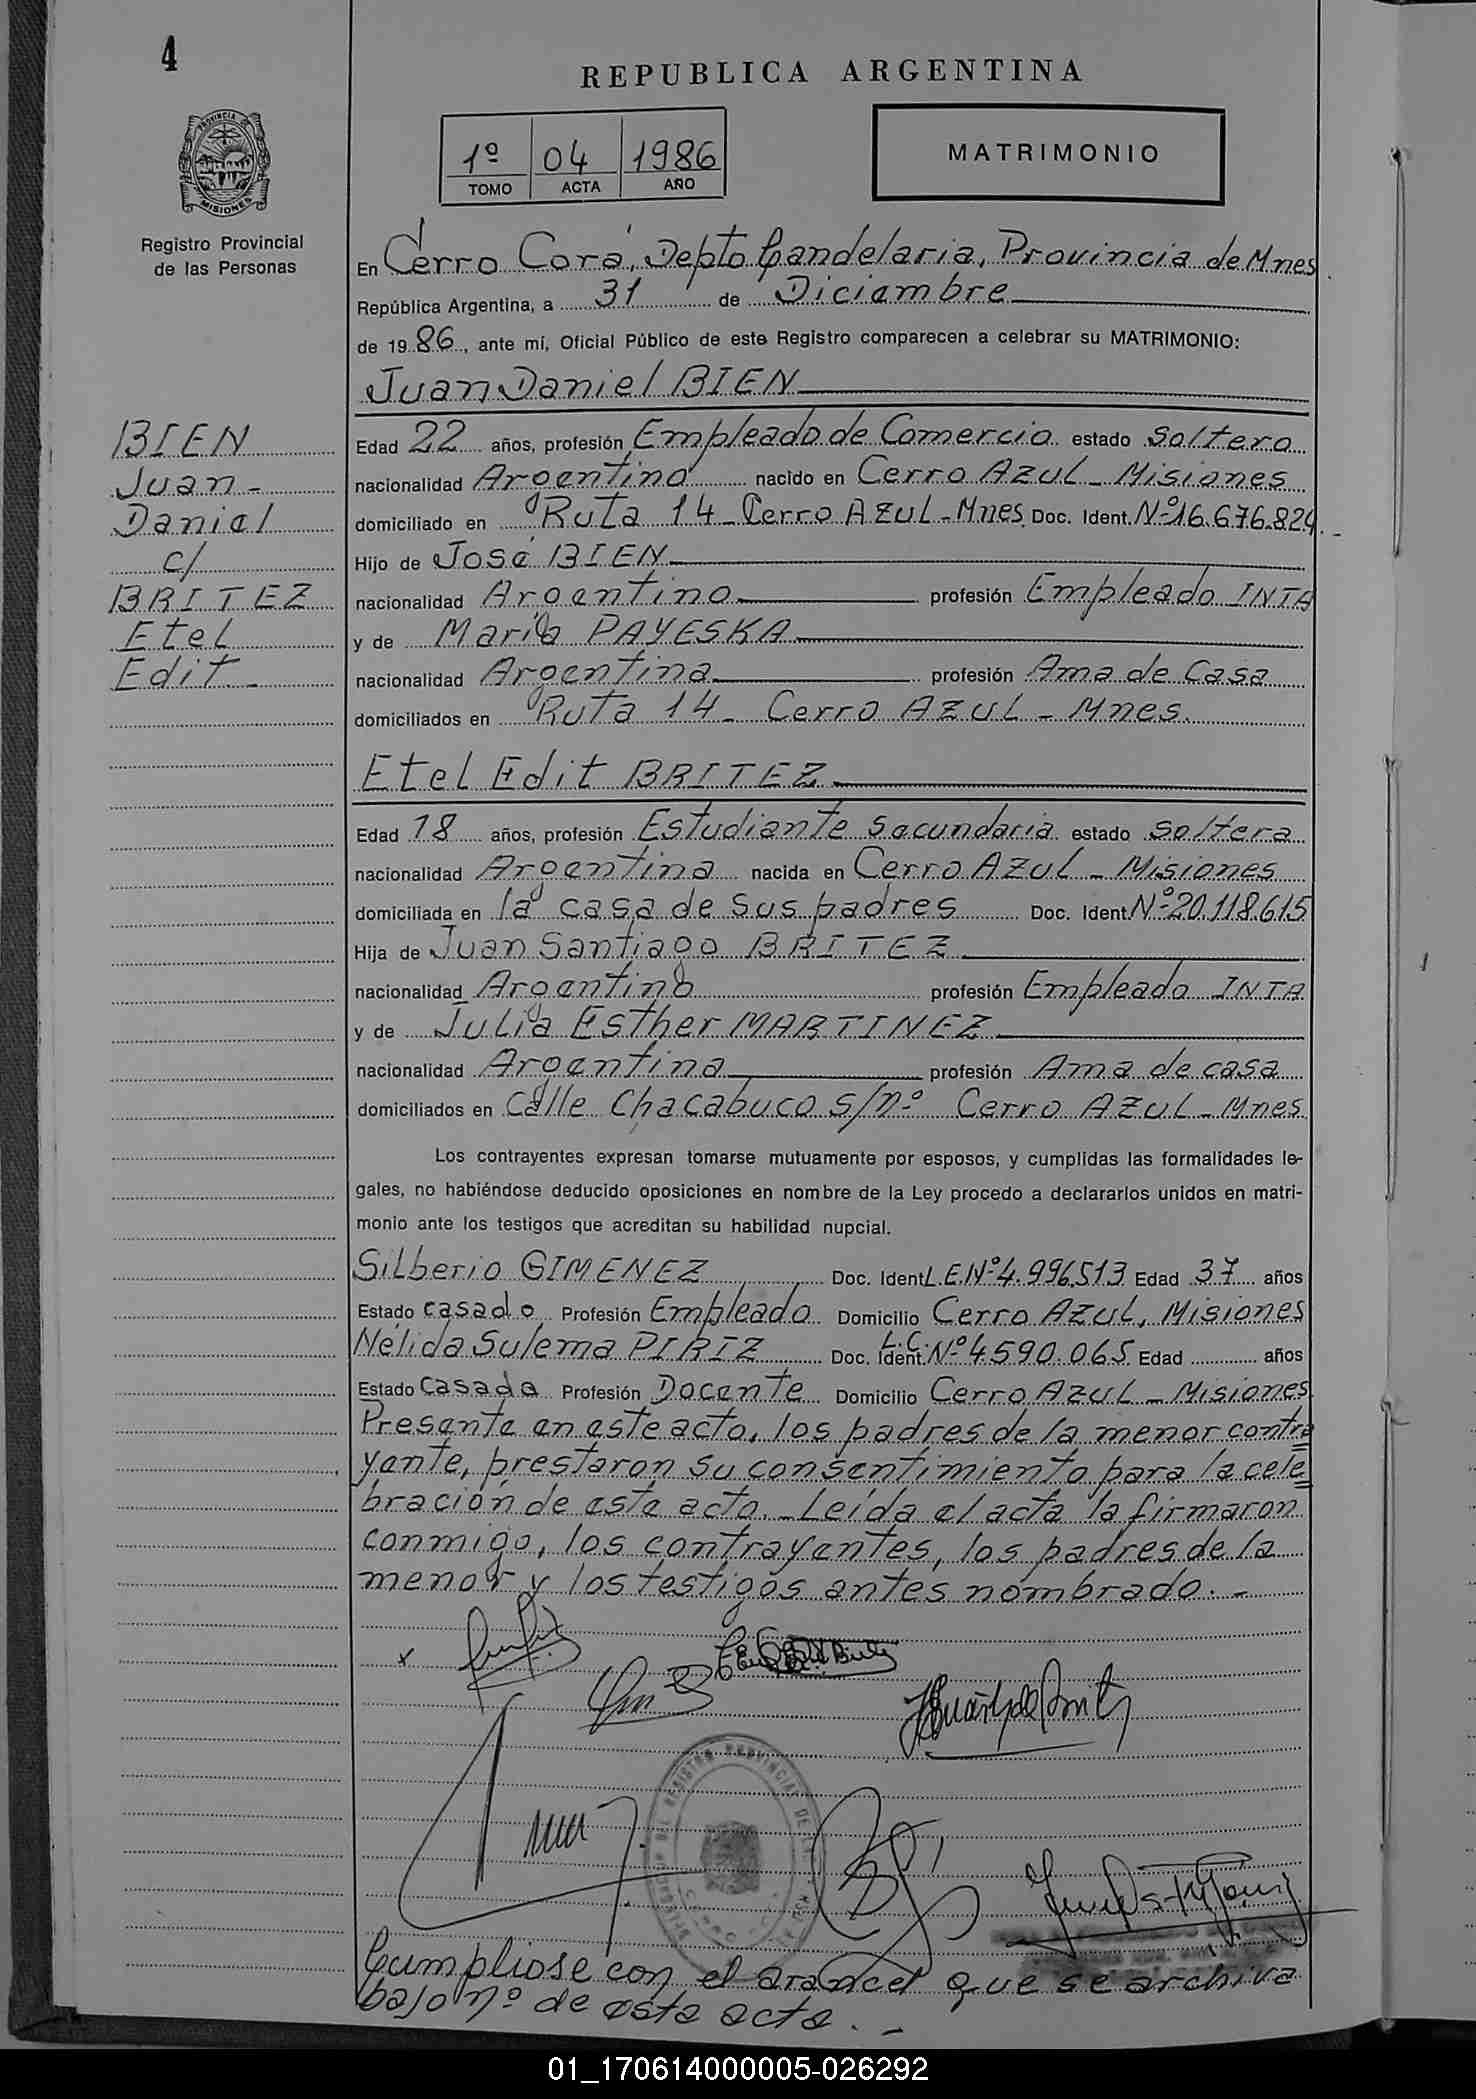 4
REPUBLICA ARGENTINA
PROVINCIA DE
MISIONES
Registro Provincial
de las Personas
1º 04 1986
TOMO ACTA AÑO
MATRIMONIO
En Cerro Corá, Depto Candelaria, Provincia de Mnes
República Argentina, a 31 de Diciembre
de 1986, ante mí, Oficial Público de este Registro comparecen a celebrar su MATRIMONIO:
Juan Daniel BIEN
BIEN
Juan-
Daniel
c/
BRITEZ
Etel
Edit-
Edad 22 años, profesión Empleado de Comercio estado soltero
nacionalidad Argentino nacido en Cerro AZUL - Misiones
domiciliado en Ruta 14 - Cerro AZUL - Mnes Doc. Ident. Nº 16.676.829
Hijo de José BIEN
nacionalidad Argentino profesión Empleado INTA
y de María PAYESKA
nacionalidad Argentina profesión Ama de Casa
domiciliados en Ruta 14 - Cerro AZUL - Mnes.
Etel Edit BRITEZ
Edad 18 años, profesión Estudiante secundaria estado soltera
nacionalidad Argentina nacida en Cerro AZUL - Misiones
domiciliada en la casa de sus padres Doc. Ident Nº 20.118.615
Hija de Juan Santiago BRITEZ
nacionalidad Argentino profesión Empleado INTA
y de Julia Esther MARTINEZ
nacionalidad Argentina profesión Ama de casa
domiciliados en Calle Chacabuco s/nº Cerro AZUL - Mnes
Los contrayentes expresan tomarse mutuamente por esposos, y cumplidas las formalidades le-
gales, no habiéndose deducido oposiciones en nombre de la Ley procedo a declararlos unidos en matri-
monio ante los testigos que acreditan su habilidad nupcial.
Silberio GIMENEZ Doc. Ident L.E.Nº 4.996.513 Edad 37 años
Estado casado Profesión Empleado Domicilio Cerro AZUL, Misiones
Nélida Sulema PIRIZ Doc. Ident. L.C. Nº 4.590.065 Edad años
Estado casada Profesión Docente Domicilio Cerro AZUL - Misiones
Presente en este acto, los padres de la menor contra
yente, prestaron su consentimiento para la cele
bración de este acto.- Leída el acta la firmaron
conmigo, los contrayentes, los padres de la
menor y los testigos antes nombrado.-
x
Cumpliose con el arancel que se archiva
bajo nº de esta acta.-
01_170614000005-026292